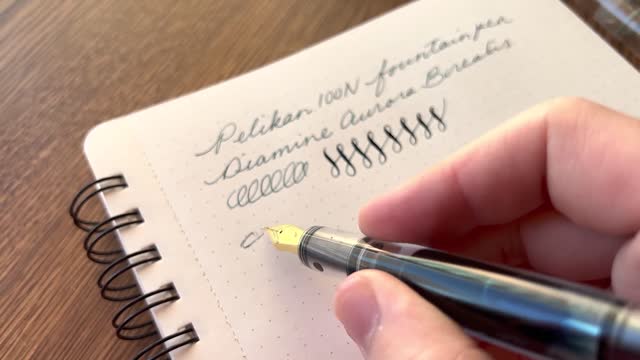 Pelikan 100N fountain pen
Diamine Aurora Borealis